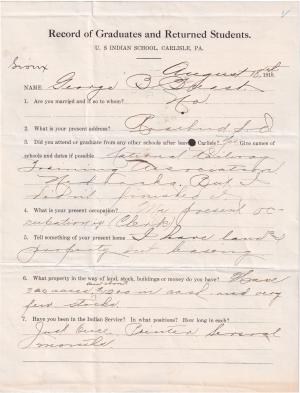 Record of Graduates and Returned Students.
U. S INDIAN SCHOOL, CARLISLE, PA.
Sioux
August 1910.
NAME George B.
1. Are you married and if so to whom? No.
2. What is your present address? Rosebud, S.D
3. Did you attend or graduate from any other schools after leaving Carlisle? Yes Give names of
schools and dates if possible National Railway
Training Association
But I
didn't finished it.
4. What is your present occupation? My present oc-
cupation is Clerk
5. Tell something of your present home I have land
property
6. What property in the way of land, stock, buildings or money do you have? I have
in cash and very
few stocks.
7. Have you been in the Indian Service? In what positions? How long in each?
Just once, Printer Several
months